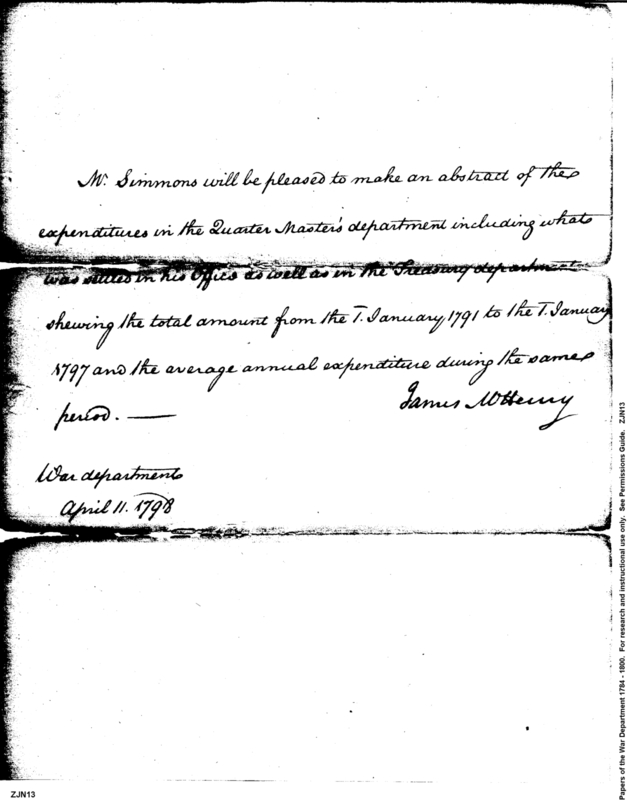 Mr. Simmons will be pleased to make an abstract of the
expenditures in the Quarter Master's department including what
was settled in his Office as well as in the Treasury department
shewing the total amount from the 1. January 1791 to the 1. January
1797 and the average annual expenditure during the same
period. —
James McHenry
War department
April 11. 1798
Papers of the War Department 1784 - 1800. For research and instructional use only. See Permissions Guide. ZJN13
ZJN13